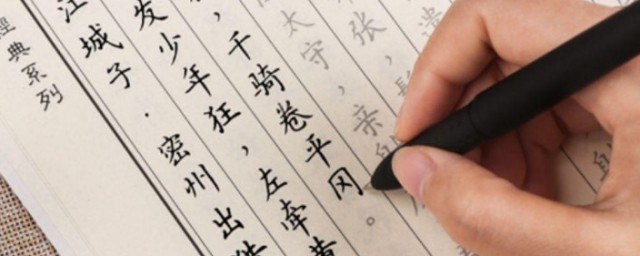 經典系列
江城子·密州出
发少年狂，左牵黄
，千骑卷平冈。
太守，亲射
张，鬓
遣